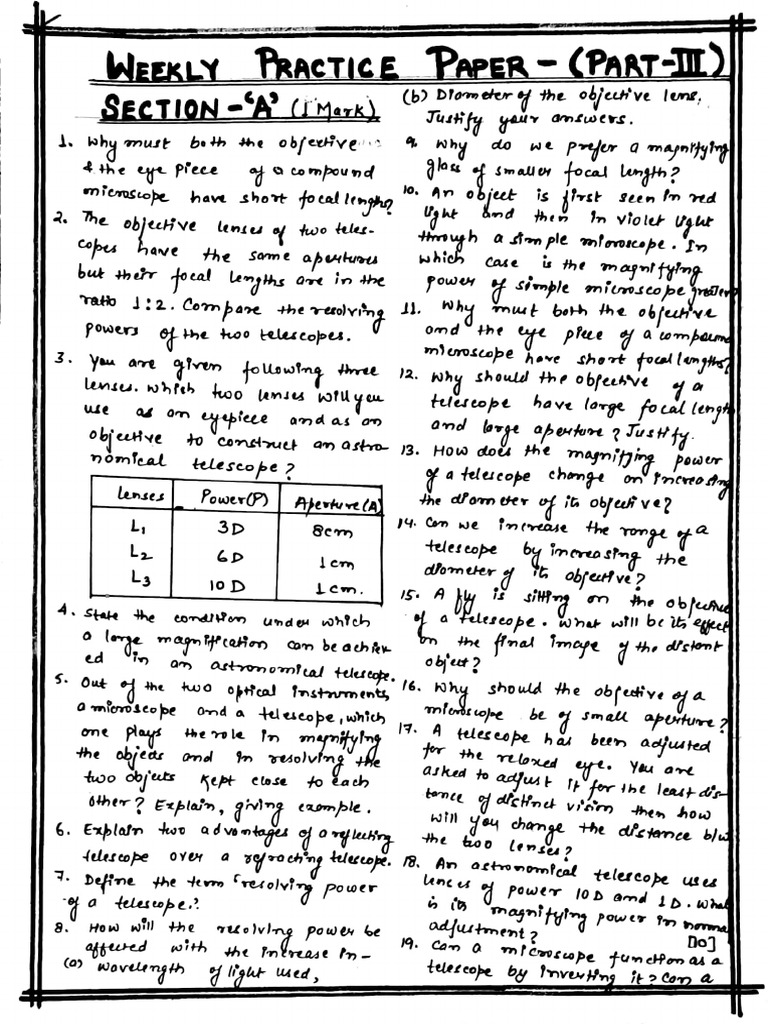 WEEKLY PRACTICE PAPER - (PART-III)
SECTION-'A' (1 Mark)
1. Why must both the objective
& the eye piece of a compound
microscope have short focal lengths?
2. The objective lenses of two teles-
copes have the same apertures
but their focal lengths are in the
ratio 1:2. Compare the resolving
powers of the two telescopes.
3. You are given following three
lenses. Which two lenses will you
use as an eyepiece and as an
objective to construct an astro-
nomical telescope?
Lenses Power(P) Aperture(A)
L1 3D 8cm
L2 6D 1cm
L3 10D 1cm.
4. State the condition under which
a large magnification can be achiev
ed in an astronomical telescope.
5. Out of the two optical instruments,
a microscope and a telescope, which
one plays the role in magnifying
the objects and in resolving the
two objects kept close to each
other? Explain, giving example.
6. Explain two advantages of a reflecting
telescope over a refracting telescope.
7. Define the term 'resolving power
of a telescope.'
8. How will the resolving power be
affected with the increase in-
(a) wavelength of light used,
(b) Diameter of the objective lens.
Justify your answers.
9. Why do we prefer a magnifying
glass of smaller focal length?
10. An object is first seen in red
light and then in violet light
through a simple microscope. In
which case is the magnifying
power of simple microscope greater?
11. Why must both the objective
and the eye piece of a compound
microscope have short focal lengths?
12. Why should the objective of a
telescope have large focal length
and large aperture? Justify.
13. How does the magnifying power
of a telescope change on increasing
the diameter of its objective?
14. Can we increase the range of a
telescope by increasing the
diameter of its objective?
15. A fly is sitting on the objective
of a telescope. What will be its effect
on the final image of the distant
object?
16. Why should the objective of a
microscope be of small aperture?
17. A telescope has been adjusted
for the relaxed eye. You are
asked to adjust it for the least dis-
tance of distinct vision then how
will you change the distance b/w
the two lenses?
18. An astronomical telescope uses
lences of power 10D and 1D. What
is its magnifying power in normal
adjustment? [10]
19. Can a microscope function as a
telescope by inverting it? Can a